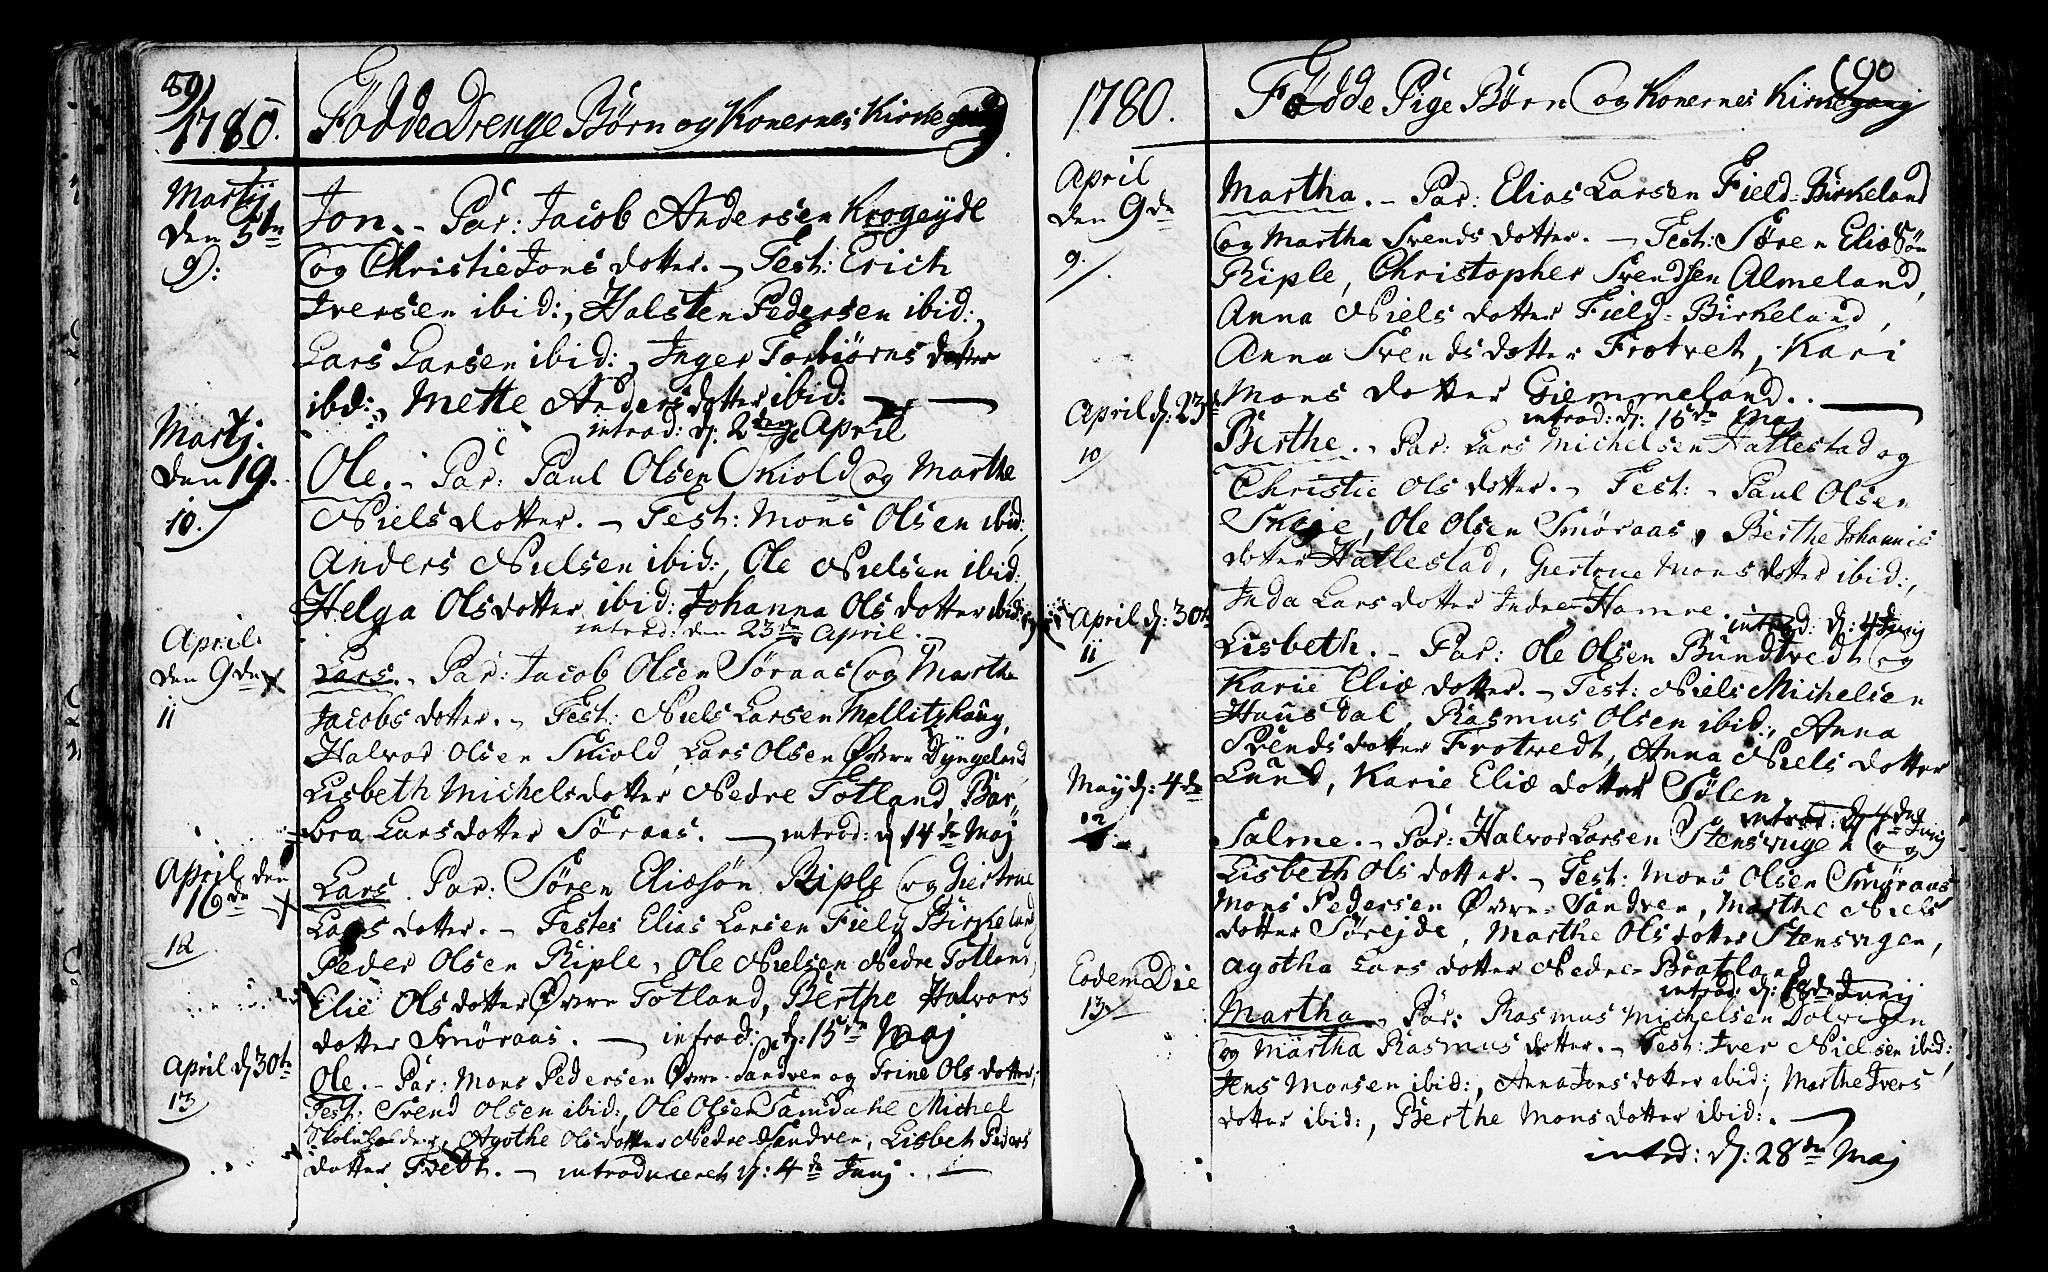 89
1780. Födde Drenge Börn og Konernes Kirkegang
Martij
den 5te
9.
Jon. - Par: Jacob Andersen Krogeyde
og Christie Jons dotter. - Test: Erich
Iversen ibid:, Halsten Pedersen ibid:,
Lars Larsen ibid:, Inger Torbiörns dotter
ibd:, Mette Anders dotter ibid.
introd: d. 2den April
Martj.
den 19.
10.
Ole. - Par: Paul Olsen Skiold og Marthe
Niels dotter. - Test: Mons Olsen ibid:
Anders Nielsen ibid:, Ole Nielsen ibid:,
Helga Olsdotter ibid: Johanna Olsdotter ibid:
introd: den 23de April.
April.
den 9de
11
Lars. - Par: Jacob Olsen Söraas og Marthe
Jacobs dotter. - Test: Niels Larsen Mellitzhaug,
Halvor Olsen Skiold, Lars Olsen Øvre Dyngeland
Lisbeth Michelsdotter Nedre Totland, Bar-
bra Larsdotter Söraas. - introd: d 14de Maj
April den
16de
12
Lars. Par: Sören Eliæsön Riple og Giertrue
Lars dotter. - Testes Elias Larsen Field Birkeland
Peder Olsen Riple, Ole Nielsen Nedre Totland,
Elie Olsdotter Øvre Totland, Berthe Halvors
dotter Smöraas. - introd: d: 15de Maj
April d 30te
13
Ole. - Par: Mons Pedersen Øvre-Sandven og Trine Ols dotter,
Test: Svend Olsen ibid:, Ole Olsen Samdahl Michel
Skoleholder, Agothe Olsdotter Nedre-Sandven, Lisbet Peders
dotter Tvedt. - introduceret d: 4de Junj.
90
1780. Födde Pige Börn og Konernes Kirkegang
April
den 9de
9.
Martha. - Par: Elias Larsen Field-Birkeland
og Martha Svends dotter. - Test: Sören Eliæsön
Riple, Christopher Svendsen Almeland,
Anna Niels dotter Field-Birkeland,
Anna Svends dotter Frotvet, Kari
Mons dotter Giemmeland.
introd: d: 15de Maj
April d: 23de
10
Berthe. - Par: Lars Michelsen Hatlestad og
Christie Ols dotter. - Test: - Paul Olsen
Skeje, Ole Olsen Smöraas, Berthe Johannis
dotter Hatlestad, Giertrue Mons dotter ibid:,
Inda Lars dotter Indre-Hamre.
introd: d: 4de Junij
April d: 30te
11
Lisbeth. - Par: Ole Olsen Bundtvedt og
Karie Eliæ dotter. - Test: Niels Michelsen
Hausdal, Rasmus Olsen ibid:, Anna
Svends dotter Frotvedt, Anna Niels dotter
Lund, Karie Eliæ dotter Sölen
introd: d 4de Junij
May d: 4de
12
Salme. - Par: Halvor Larsen Stensvigen og
Lisbeth Ols dotter. - Test: Mons Olsen Smöraas
Mons Pedersen Øvre-Sandven, Marthe Niels
dotter Sörejde, Marthe Olsdotter Stensvigen,
Agotha Lars dotter Nedre-Bratland
introd: d: 18de Junij
Eodem Die
13
Martha. - Par: Rasmus Michelsen Dolvigen
og Martha Rasmus dotter. - Test: Iver Nielsen ibid:,
Jens Monsen ibid:, Anna Jons dotter ibid:, Marthe Ivers
dotter ibid:, Berthe Mons dotter ibid:. -
introd: d: 28de Maj